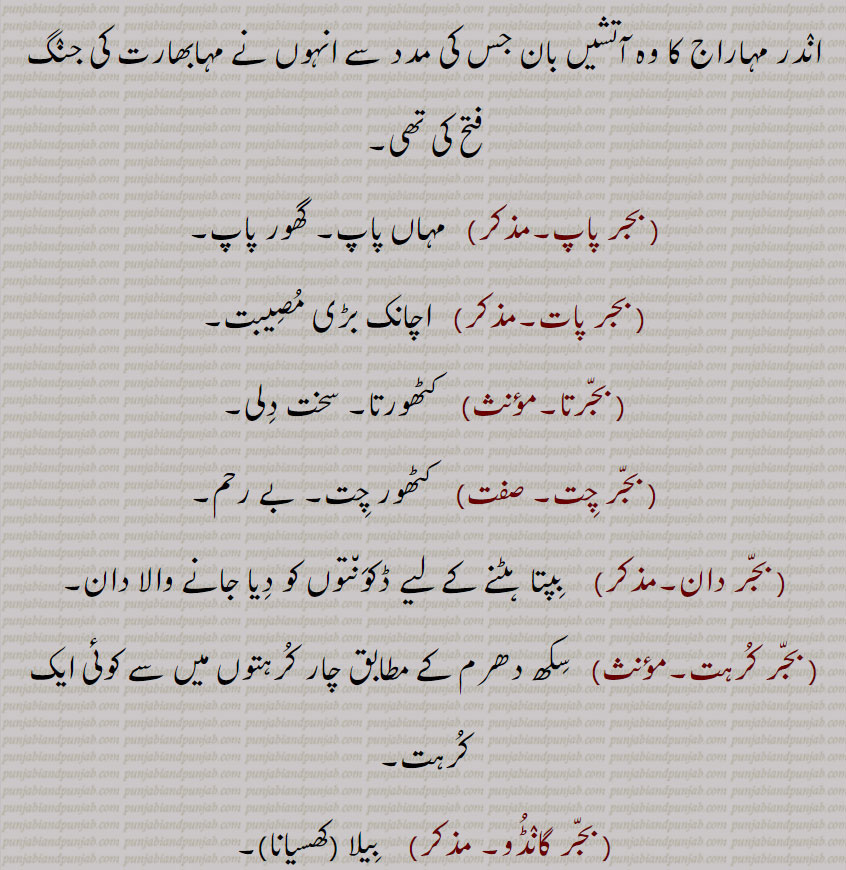 انْدر مہاراج کا وہ آتشیں بان جس کی مدد سے انہوں نے مہابھارت کی جنگ
فتح کی تھی۔
(بجر پاپ۔مذکر) مہاں پاپ۔ گھور پاپ۔
(بجر پات۔مذکر) اچانک بڑی مُصِیبت۔
(بجّرتا۔مؤنث) کٹھورتا۔ سخت دِلی۔
(بجّر چِت۔ صفت) کٹھور چِت۔ بے رحم۔
(بجّر دان۔مذکر) بِپتا ہٹنے کے لیے ڈکوَنّتوں کو دِیا جانے والا دان۔
(بجّر کُرہت۔مؤنث) سِکھ دھرم کے مطابق چار کُرہتوں میں سے کوئی ایک
کُرہت۔
(بجّر گانْڈُو۔ مذکر) بِیلا (کھسیانا)۔